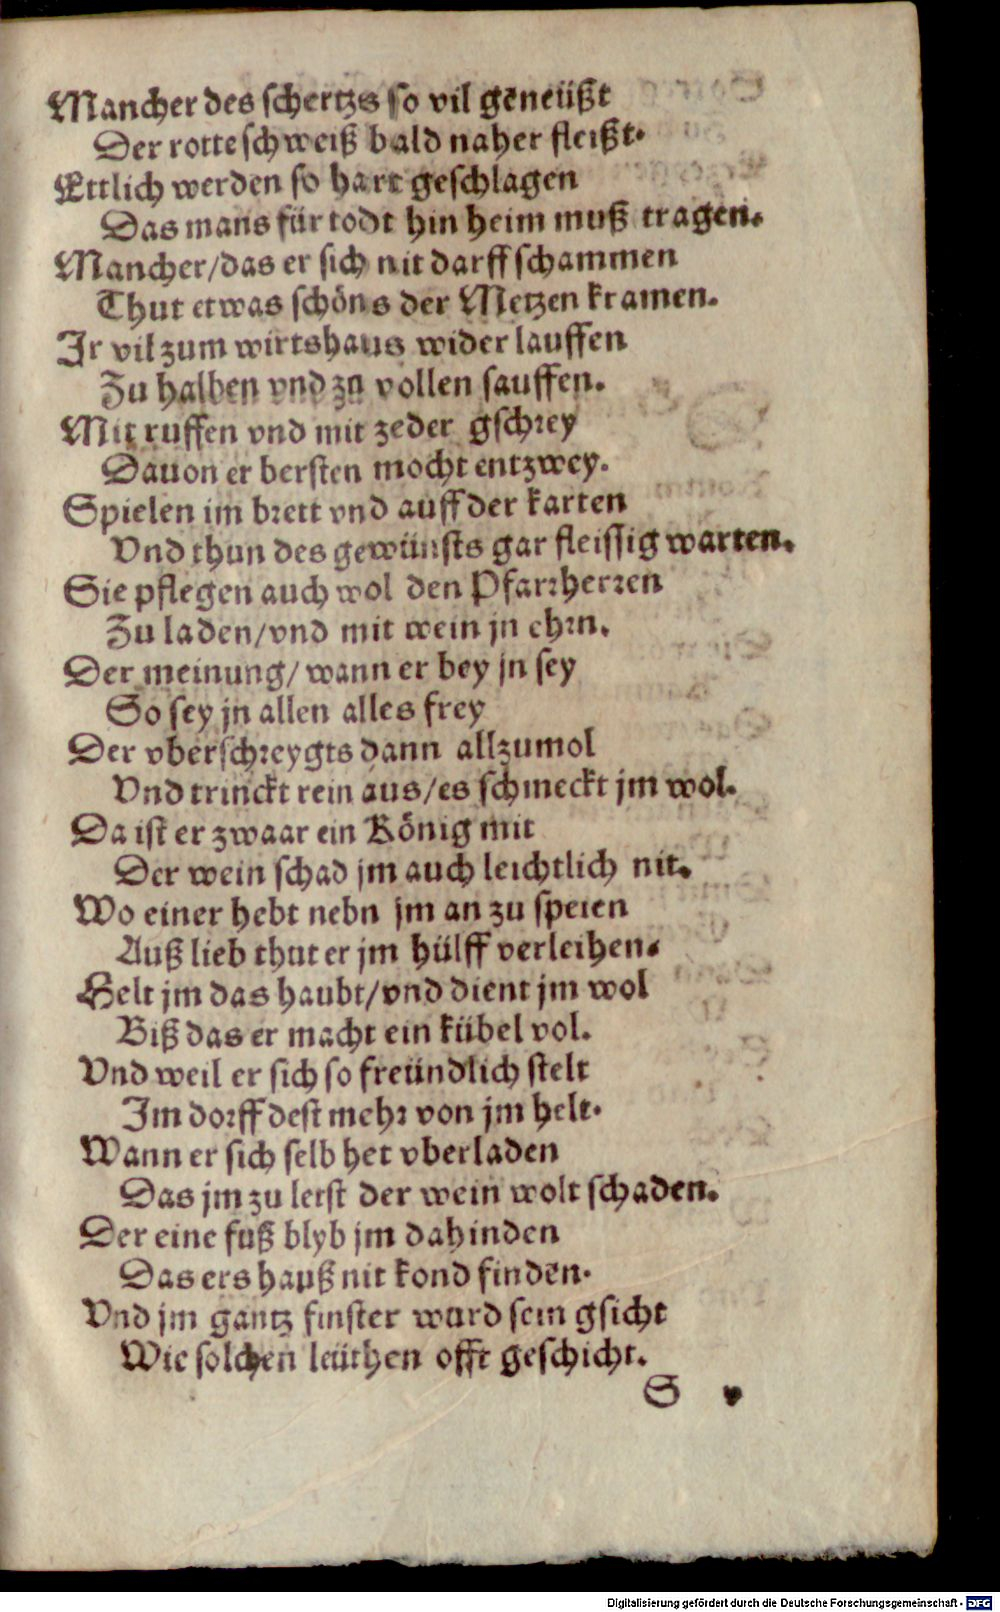 Mancher des schertzs so vil geneüßt
Der rotte schweiß bald naher fleißt.
Ettlich werden so hart geschlagen
Das mans für todt hin heim muß tragen.
Mancher/das er sich nit darff schammen
Thut etwas schöns der Metzen kramen.
Ir vil zum wirtshaus wider lauffen
Zu halben vnd zu vollen sauffen.
Mit ruffen vnd mit zeder gschrey
Dauon er bersten mocht entzwey.
Spielen im brett vnd auff der karten
Vnd thun des gewünsts gar fleissig warten.
Sie pflegen auch wol den Pfarrherren
Zu laden/vnd mit wein jn ehrn.
Der meinung/ wann er bey jn sey
So sey jn allen alles frey
Der vberschreygts dann allzumol
Vnd trinckt rein aus/es schmeckt jm wol.
Da ist er zwaar ein König mit
Der wein schad jm auch leichtlich nit.
Wo einer hebt nebn jm an zu speien
Auß lieb thut er jm hülff verleihen.
Helt jm das haubt/vnd dient jm wol
Biß das er macht ein kübel vol.
Vnd weil er sich so freündlich stelt
Im dorff dest mehr von jm helt.
Wann er sich selb het vberladen
Das jm zu letst der wein wolt schaden.
Der eine fuß blyb jm dahinden
Das ers hauß nit kond finden.
Vnd jm gantz finster ward sein gsicht
Wie solchen leüthen offt geschicht.
S v
Digitalisierung gefördert durch die Deutsche Forschungsgemeinschaft - DFG